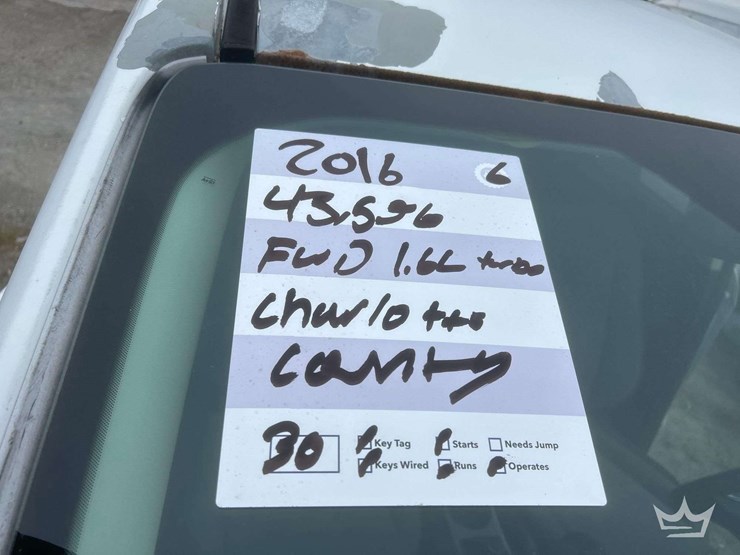 2016 6
43,596
FWD 1.6L turbo
Charlotte
County
30 Key Tag Starts Needs Jump
Keys Wired Runs Operates